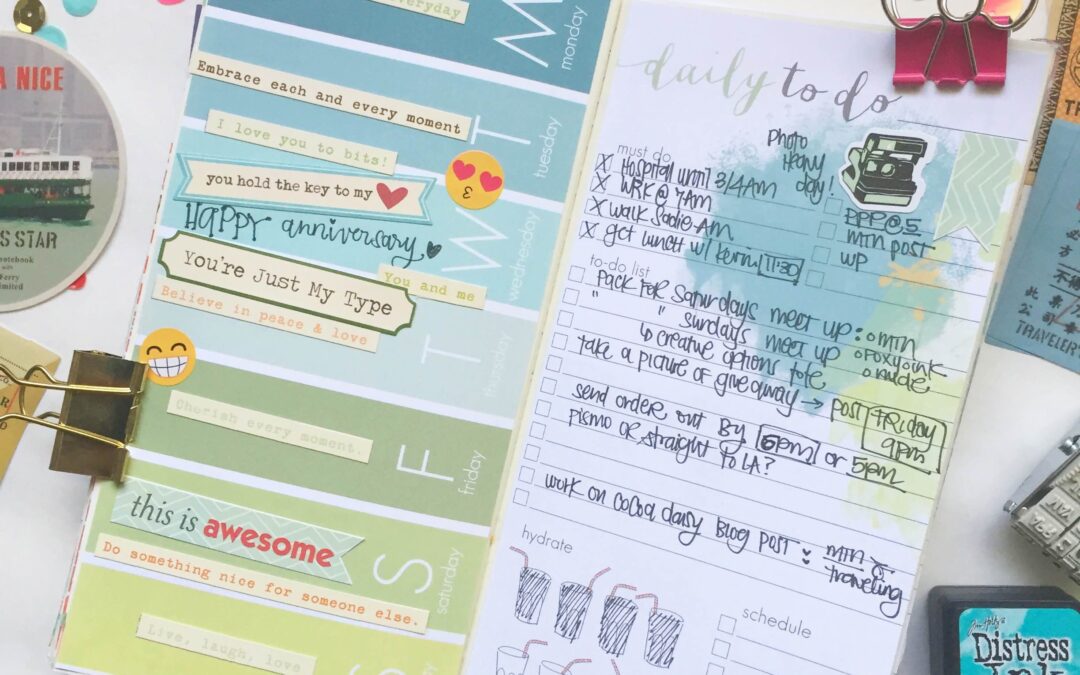 A NICE
S STAR
notebook
with
Ferry
Limited
everyday
M
monday
Embrace each and every moment
I love you to bits!
T
tuesday
you hold the key to my
Happy anniversary
W
wednesday
You're Just My Type
You and me
Believe in peace & love
T
thursday
Cherish every moment.
F
friday
this is awesome
S
saturday
Do something nice for someone else.
Live, laugh, love
S
daily to do
photo
heavy
day!
must do
X Hospital until 3/4AM
X WRK @ 7AM
X walk Sadie-AM
X get lunch w/ 11:30
PPP@5
MTN post
WP
to-do list
Pack for Saturdays meet up: o MTN
" " Sundays meet up o foxyoink
↳ creative options tote o nude
take a picture of giveaway → post FRIDAY
9pm
send order out by 6pm or 5pm
pismo or straight to LA?
work on cocoa daisy Blog post: MTN &
traveling
hydrate
schedule
TRAVELER
Tim Holtz
Distress
Ink